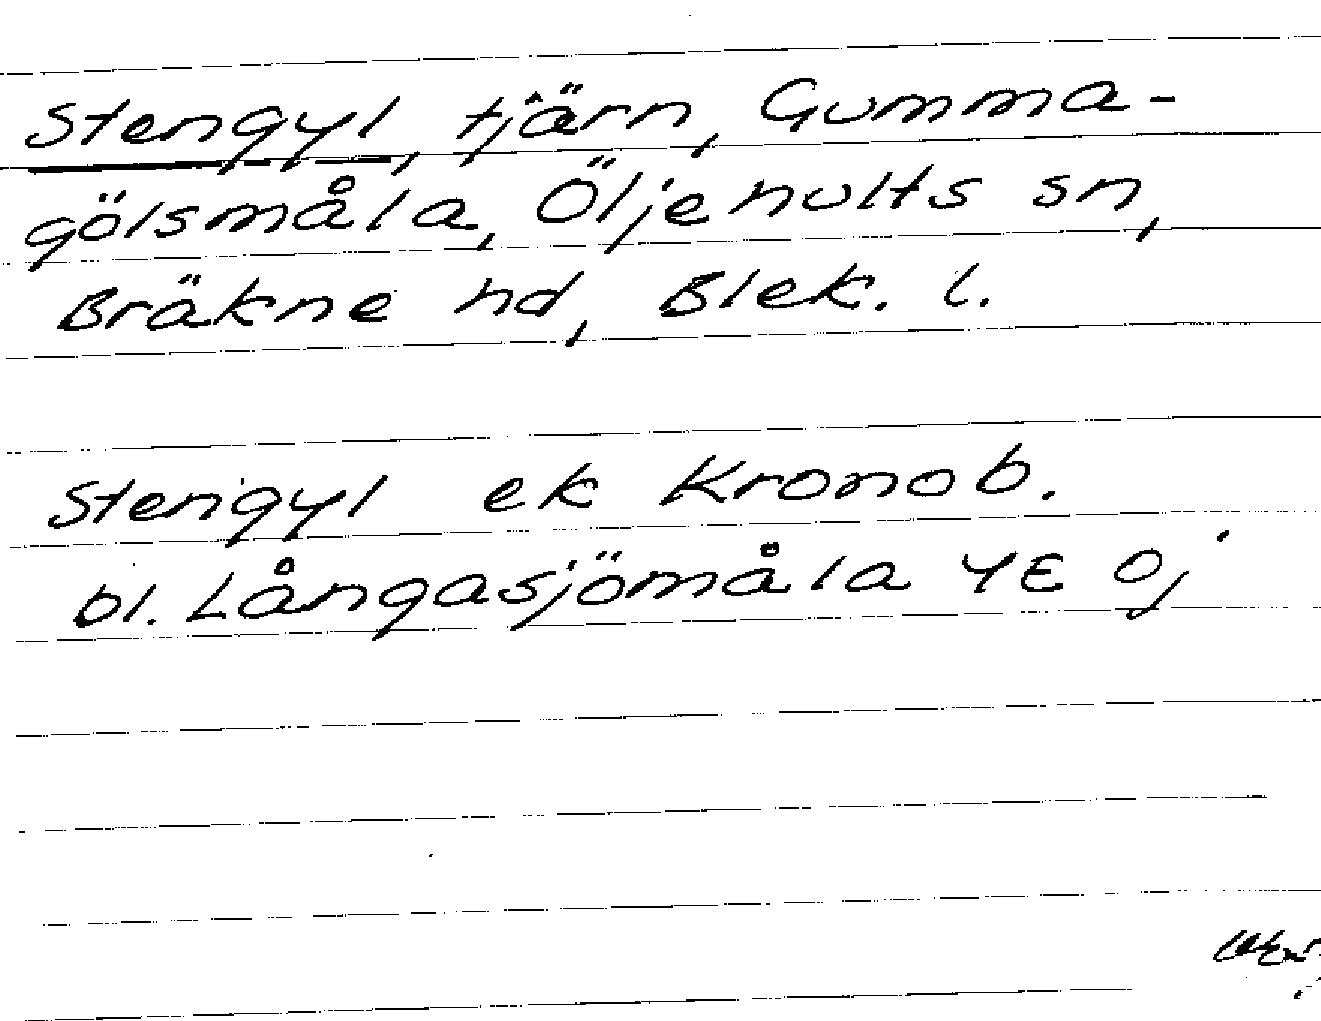 Stengyl, tjärn, Gumma-
gölsmåla, Öljehults sn,
Bräkne hd, Blek. l.
Stengyl ek Kronob.
bl. Långasjömåla 4E Oj